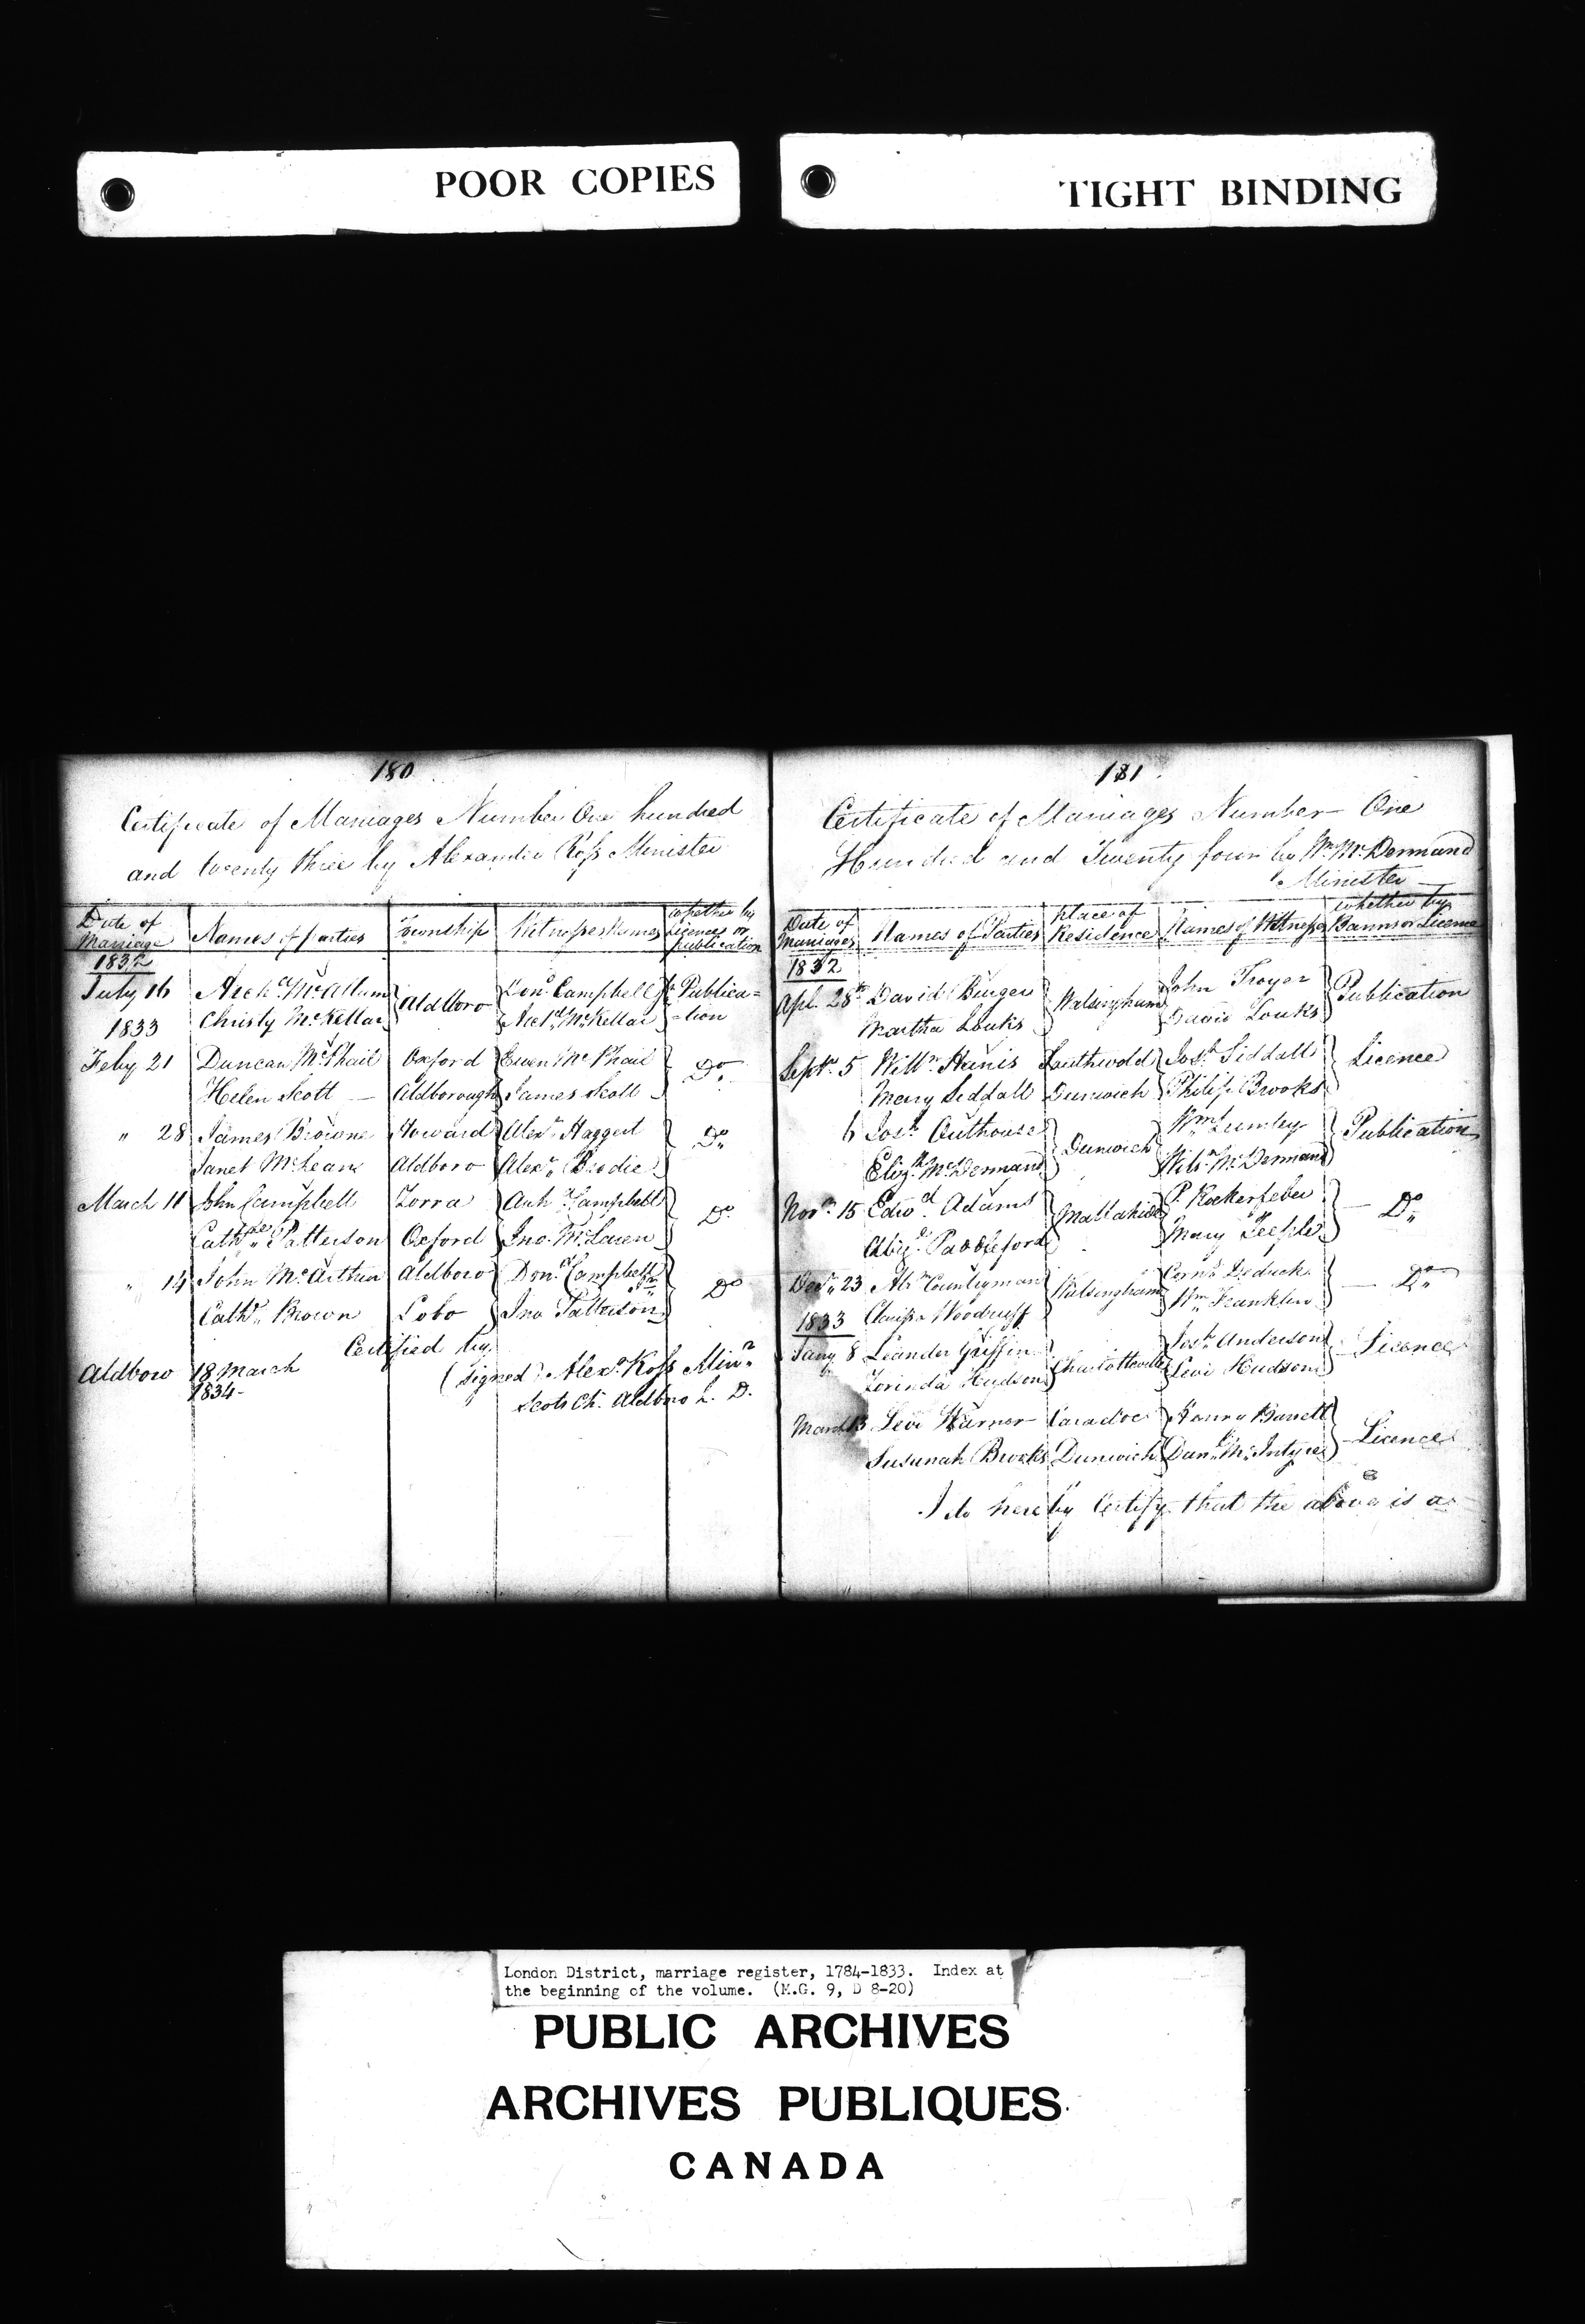 POOR COPIES
TIGHT BINDING
180
Certificate of Marriages Number One hundred
and twenty three by Alexander Ross Minister
Date of Marriage | Names of parties | Township | Witnesses Names | whether by Licences or publication
1832
July 16 Archd McAllum Aldboro Don. Campbell Publica=
1833 Christy McKellar Archd McKellar =tion
Feby 21 Duncan McPhail Oxford Ewen McPhail Do
Helen Scott — Aldborough James Scott
" 28 James Browne Howard Alexr Haggart Do
Janet McLean Aldboro Alexr Brodie
March 11 John Campbell Zorra Arch Campbell Do
Cathne Patterson Oxford Jno. McLaren
" 14 John McArthur Aldboro Don. Campbell Do
Cath Brown Lobo Jno Patterson
Certified by
Aldboro 18 March (signed) Alexr Ross Minr
1834- Scots Ch. Aldboro L. D.
181
Certificate of Marriages Number One
Hundred and Twenty four by Wm McDermand
Minister
Date of Marriages | Names of Parties | place of Residence | Names of Witness | whether by Banns or Licence
1832
Apl. 28th David Burger Walsingham John Troyer Publication
Martha Louks David Louks
Septr. 5 Willm Harris Southwold Josh Siddall Licence
Mary Siddall Dunwich Philip Brooks
6 Josh Outhouse Dunwich Wm Lumley Publication
Elizh McDermand Wm McDermand
Novr 15 Edwd Adams Mallahide P. Rockerfeler Do
Abig. Paddleford Mary Teeple
Decr 23 Abr Countryman Walsingham Corns Dedrick Do
1833 Clarissa Woodruff Wm Franklin
Jany 8 Leander Griffin Charlotteville Josh Anderson Licence
Lorinda Hudson Levi Hudson
March 13 Levi Warner Caradoc Henry Barrett Licence
Susunah Brooks Dunwich Danl McIntyre
I do hereby Certify that the above is a
London District, marriage register, 1784-1833. Index at
the beginning of the volume. (M.G. 9, D 8-20)
PUBLIC ARCHIVES
ARCHIVES PUBLIQUES
CANADA